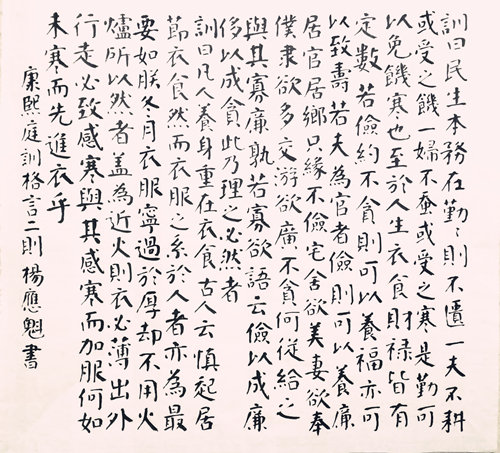 訓曰民生本務在勤勤則不匱一夫不耕
或受之饑一婦不蚕或受之寒是勤可
以免饑寒也至於人生衣食財祿皆有
定數若儉約不貪則可以養福亦可
以致壽若夫為官者儉則可以養廉
居官居鄉只緣不儉宅舍欲美妻欲奉
僕隶欲多交游欲廣不貪何從給之
與其寡廉孰若寡欲語云儉以成廉
侈以成貪此乃理之必然者
訓曰凡人養身重在衣食古人云慎起居
節衣食然而衣服之系於人者亦為最
要如朕冬月衣服寧過於厚却不用火
爐所以然者蓋為近火則衣必薄出外
行走必致感寒與其感寒而加服何如
未寒而先進衣乎
康熙庭訓格言二則楊應魁書